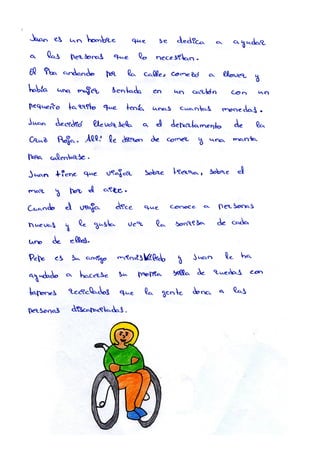 Juan es un hombre que se dedica a ayudar
a las personas que lo necesitan.
Él iba andando por la calle, comenzó a llover y
había una mujer sentada en un cartón con un
pequeño tarrito que tenía unas cuantas monedas.
Juan decidió llevársela a el departamento de la
Cruz Roja. Allí le dieron de comer y una manta
para calentarse.
Juan tiene que viajar sobre tierra, sobre el
mar y por el aire.
Cuando el viaja dice que conoce a personas
nuevas y le gusta ver la sonrisa de cada
uno de ellos.
Pepe es su amigo minusválido y Juan le ha
ayudado a hacerse su propia silla de ruedas con
tapones reciclados que la gente dona a las
personas discapacitadas.